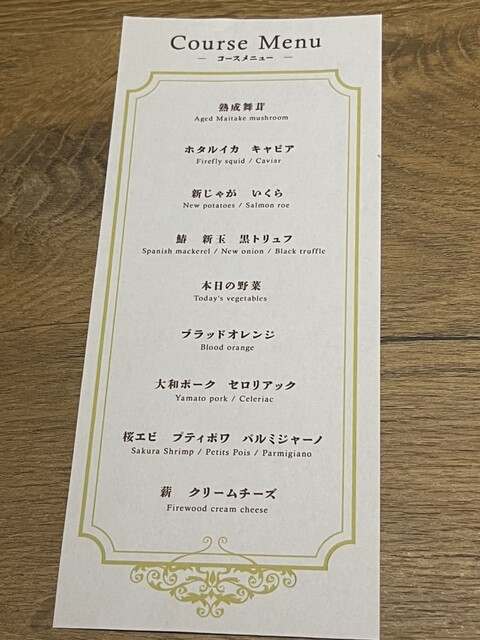 Course Menu
― コースメニュー ―
熟成舞茸
Aged Maitake mushroom
ホタルイカ　キャビア
Firefly squid / Caviar
新じゃが　いくら
New potatoes / Salmon roe
鰆　新玉　黒トリュフ
Spanish mackerel / New onion / Black truffle
本日の野菜
Today's vegetables
ブラッドオレンジ
Blood orange
大和ポーク　セロリアック
Yamato pork / Celeriac
桜エビ　プティポワ　パルミジャーノ
Sakura Shrimp / Petits Pois / Parmigiano
薪　クリームチーズ
Firewood cream cheese